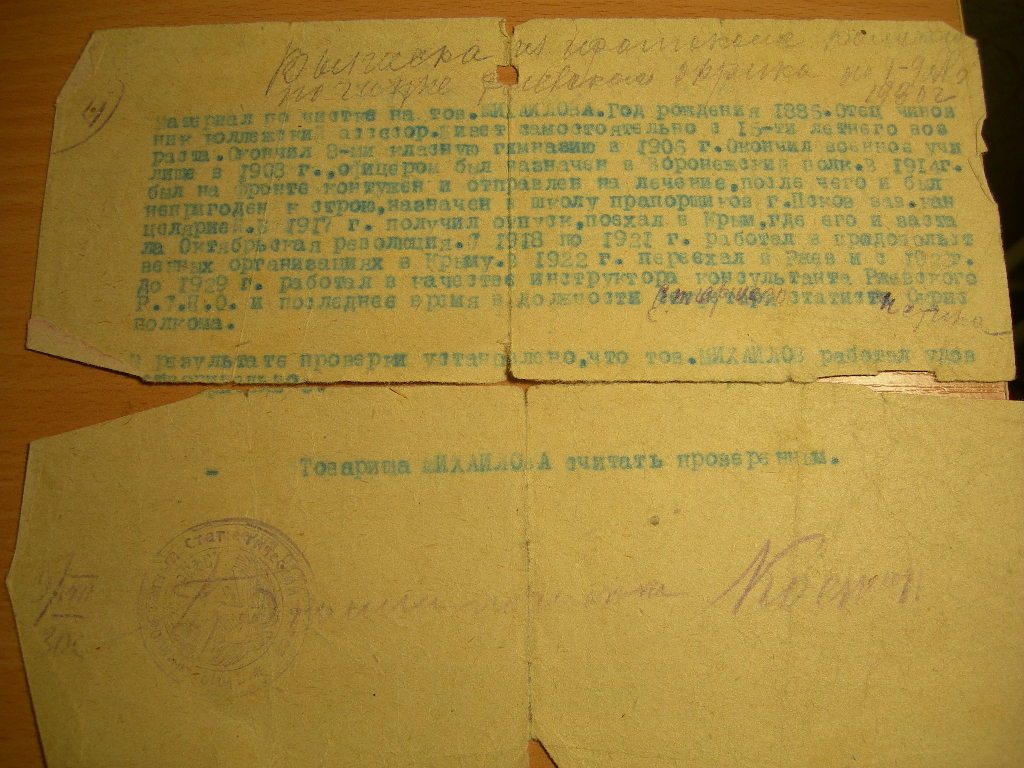 Выписка из протокола Комиссии
по чистке Ржевского окрика
4)
Материал по чистке на тов.МИХАИЛОВА.Год рождения 1885.Отец чинов
ник коллежский ассесор.Живет самостоятельно с 15-ти летнего воз
раста.Окончил 8-ми класную гимназию в 1906 г.Окончил военное учи
лище в 1908 г.,офицером был назначен в Воронежский полк.В 1914г.
был на фронте контужен и отправлен на лечение,после чего и был
непригоден к строю,назначен в школу прапорщиков г.Псков зав.кан
целярией.В 1917 г. получил отпуск,поехал в Крым,где его и заста
ла Октябрьская революция.С 1918 по 1921 г. работал в продовольст
венных организациях в Крыму.В 1922 г. переехал в Ржев и с 1922г.
до 1929 г. работал в качестве инструктора консультанта Ржевского
и последнее время в должности старшего статистика Окрис
полкома.
В результате проверки установлено,что тов.МИХАИЛОВ работал удов
летворительно.
- Товарища МИХАИЛОВА считать проверенным.